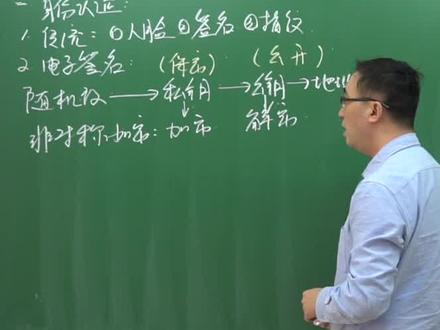 一 身份认证:
1. 传统: ①人脸 ②签名 ③指纹
2. 电子签名: (保密) (公开)
随机数 → 私钥 → 公钥 → 地址
非对称加密: 加密 解密